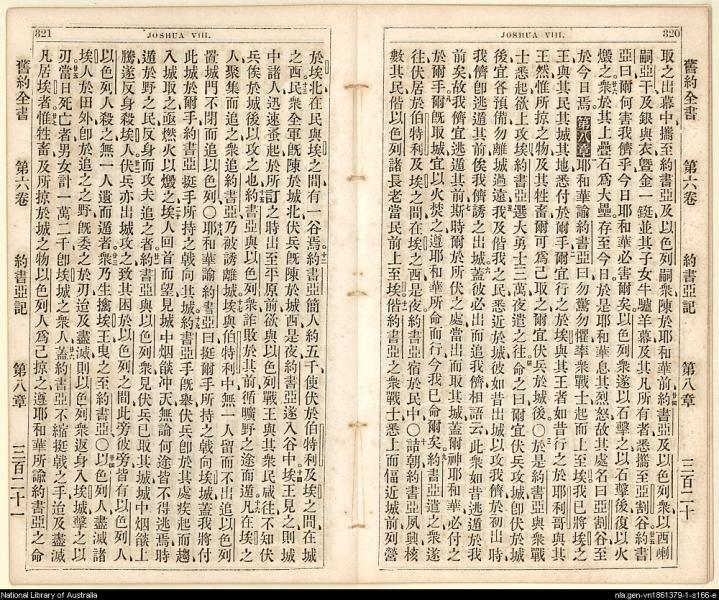 320
JOSHUA VIII.
舊約全書 第六卷 約書亞記 第八章 三百二十
取之出幕中攜至約書亞及以色列嗣衆陳於耶和華前約書亞及以色列衆以西喇
嗣亞干及銀與衣曁金一鋌並其子女牛驢羊幕及其凡所有者悉攜至亞割谷約書
亞曰爾何害我儕乎今日耶和華必害爾矣以色列衆遂以石擊之以石擊後復以火
燬之衆於其上壘石爲大壘存至今日於是耶和華息其烈怒故其處名曰亞割谷至
於今日焉第八章耶和華諭約書亞曰勿驚勿懼率衆戰士起而上至埃我已將埃之
王與其民其城其地悉付於爾手爾宜行之於埃與其王者如昔行之於耶利哥與其
王然惟所掠之物及其牲畜爾可爲己取之爾宜伏兵於城後○於是約書亞與衆戰
士悉起欲上攻埃約書亞選大勇士三萬夜遣之往命之曰爾宜伏兵攻城卽伏於城
後宜各預備勿離城過遠我及偕我之民悉近於城彼如昔出城以攻我儕於初出時
我儕卽逃遁其前俟我儕誘之出城蓋彼必出而追我儕相語云此衆如昔逃遁於我
前矣故我儕宜逃遁其前斯時爾於所伏之處當出而取其城蓋爾神耶和華必付之
於爾手爾旣取城宜以火焚之遵耶和華所命而行今我已命爾矣約書亞遣之衆遂
往伏居於伯特利及埃之間在埃之西是夜約書亞宿於民中○詰朝約書亞夙興核
數其民偕以色列諸長老當民前上至埃偕約書亞之衆戰士悉上而偪近城前列營
321
JOSHUA VIII.
於埃北在民與埃之間有一谷焉約書亞簡人約五千使伏於伯特利及埃之間在城
之西民衆全軍旣陳於城北伏兵旣陳於城西是夜約書亞遂入谷中埃王見之則城
中諸人迅速蚤起於所訂之時出至平原前欲與以色列戰王與其衆民咸往不知伏
兵俟於城後以攻之也約書亞與以色列衆詐敗於其前循曠野之途而遁凡在埃之
人聚集而追之衆追約書亞乃被誘離城埃與伯特利中無一人留而不出追以色列
置城門不閉而追以色列○耶和華諭約書亞曰挺爾手所持之戟向埃城蓋我將付
此城於爾手約書亞挺手所持之戟向其城約書亞手旣舉伏兵卽於其處疾起而趨
入城取之亟燃火以燬之埃人回首而望見城中烟燄冲天無論何途皆不得逃焉時
遁於野之民反身而攻夫追之者約書亞與以色列衆見伏兵已取其城城中烟燄上
騰遂反身殺埃人伏兵亦出城攻之致其困於以色列之間此旁彼旁皆有以色列人
以色列人殺之無一人遺而遁者衆乃生擒埃王曳之至約書亞○以色列人盡滅諸
埃人於田外卽於追之之野旣委之於刃迨及盡滅則以色列衆返身入埃城擊之以
刃當日死亡者男女計一萬二千卽埃城之衆人蓋約書亞不縮挺戟之手迨及盡滅
凡居埃者惟牲畜及所掠於城之物以色列人爲己掠之遵耶和華所諭約書亞之命
舊約全書 第六卷 約書亞記 第八章 三百二十一
National Library of Australia
nla.gen-vn1861379-1-s166-e